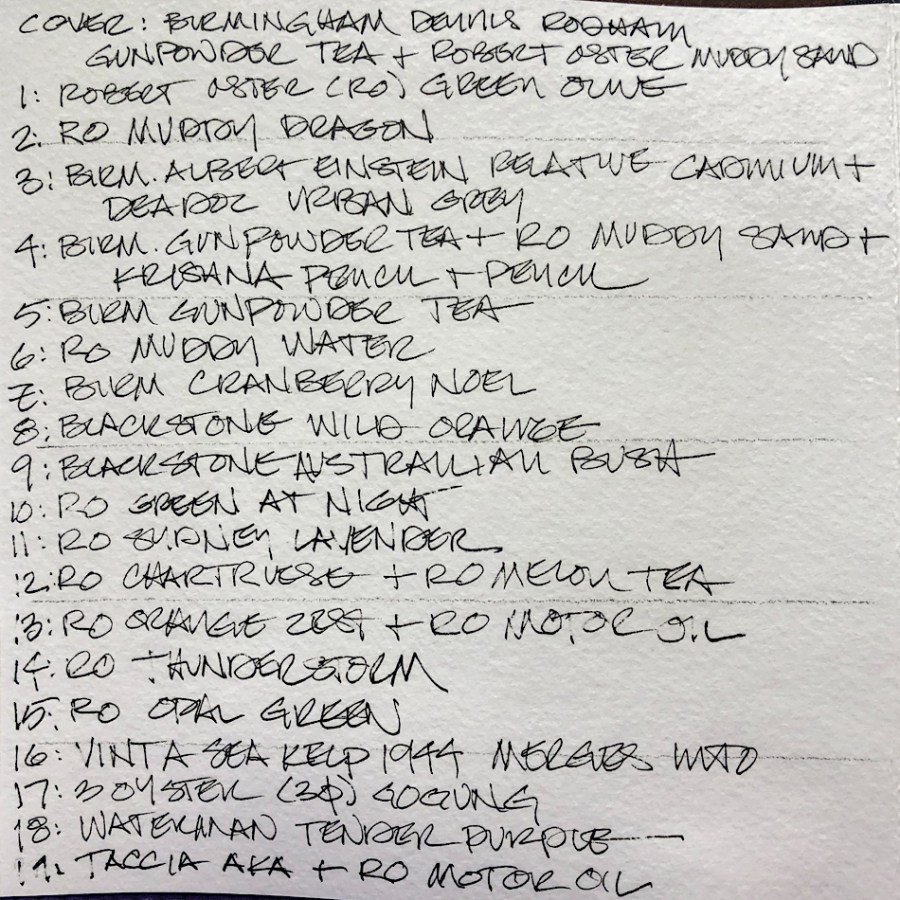 COVER: BIRMINGHAM DENNIS RODHAM
GUNPOWDER TEA + ROBERT OSTER MUDDY SAND
1: ROBERT OSTER (RO) GREEN OLIVE
2: RO MUDDY DRAGON
3: BIRM. ALBERT EINSTEIN RELATIVE CADMIUM +
DEADOZ URBAN GREY
4: BIRM. GUNPOWDER TEA + RO MUDDY SAND +
KRISHNA PENCIL + PENCIL
5: BIRM GUNPOWDER TEA
6: RO MUDDY WATER
7: BIRM CRANBERRY NOEL
8: BLACKSTONE WILD ORANGE
9: BLACKSTONE AUSTRALIAN BUSH
10: RO GREEN AT NIGHT
11: RO SYDNEY LAVENDER
12: RO CHARTRUESE + RO MELON TEA
13: RO ORANGE ZEST + RO MOTOR OIL
14: RO THUNDERSTORM
15: RO OPAL GREEN
16: VINTA SEA KELP 1944 MERGES INTO
17: 3 OYSTER (3Ø) GOGUNG
18: WATERMAN TENDER PURPLE
19: TACCIA AKA + RO MOTOR OIL